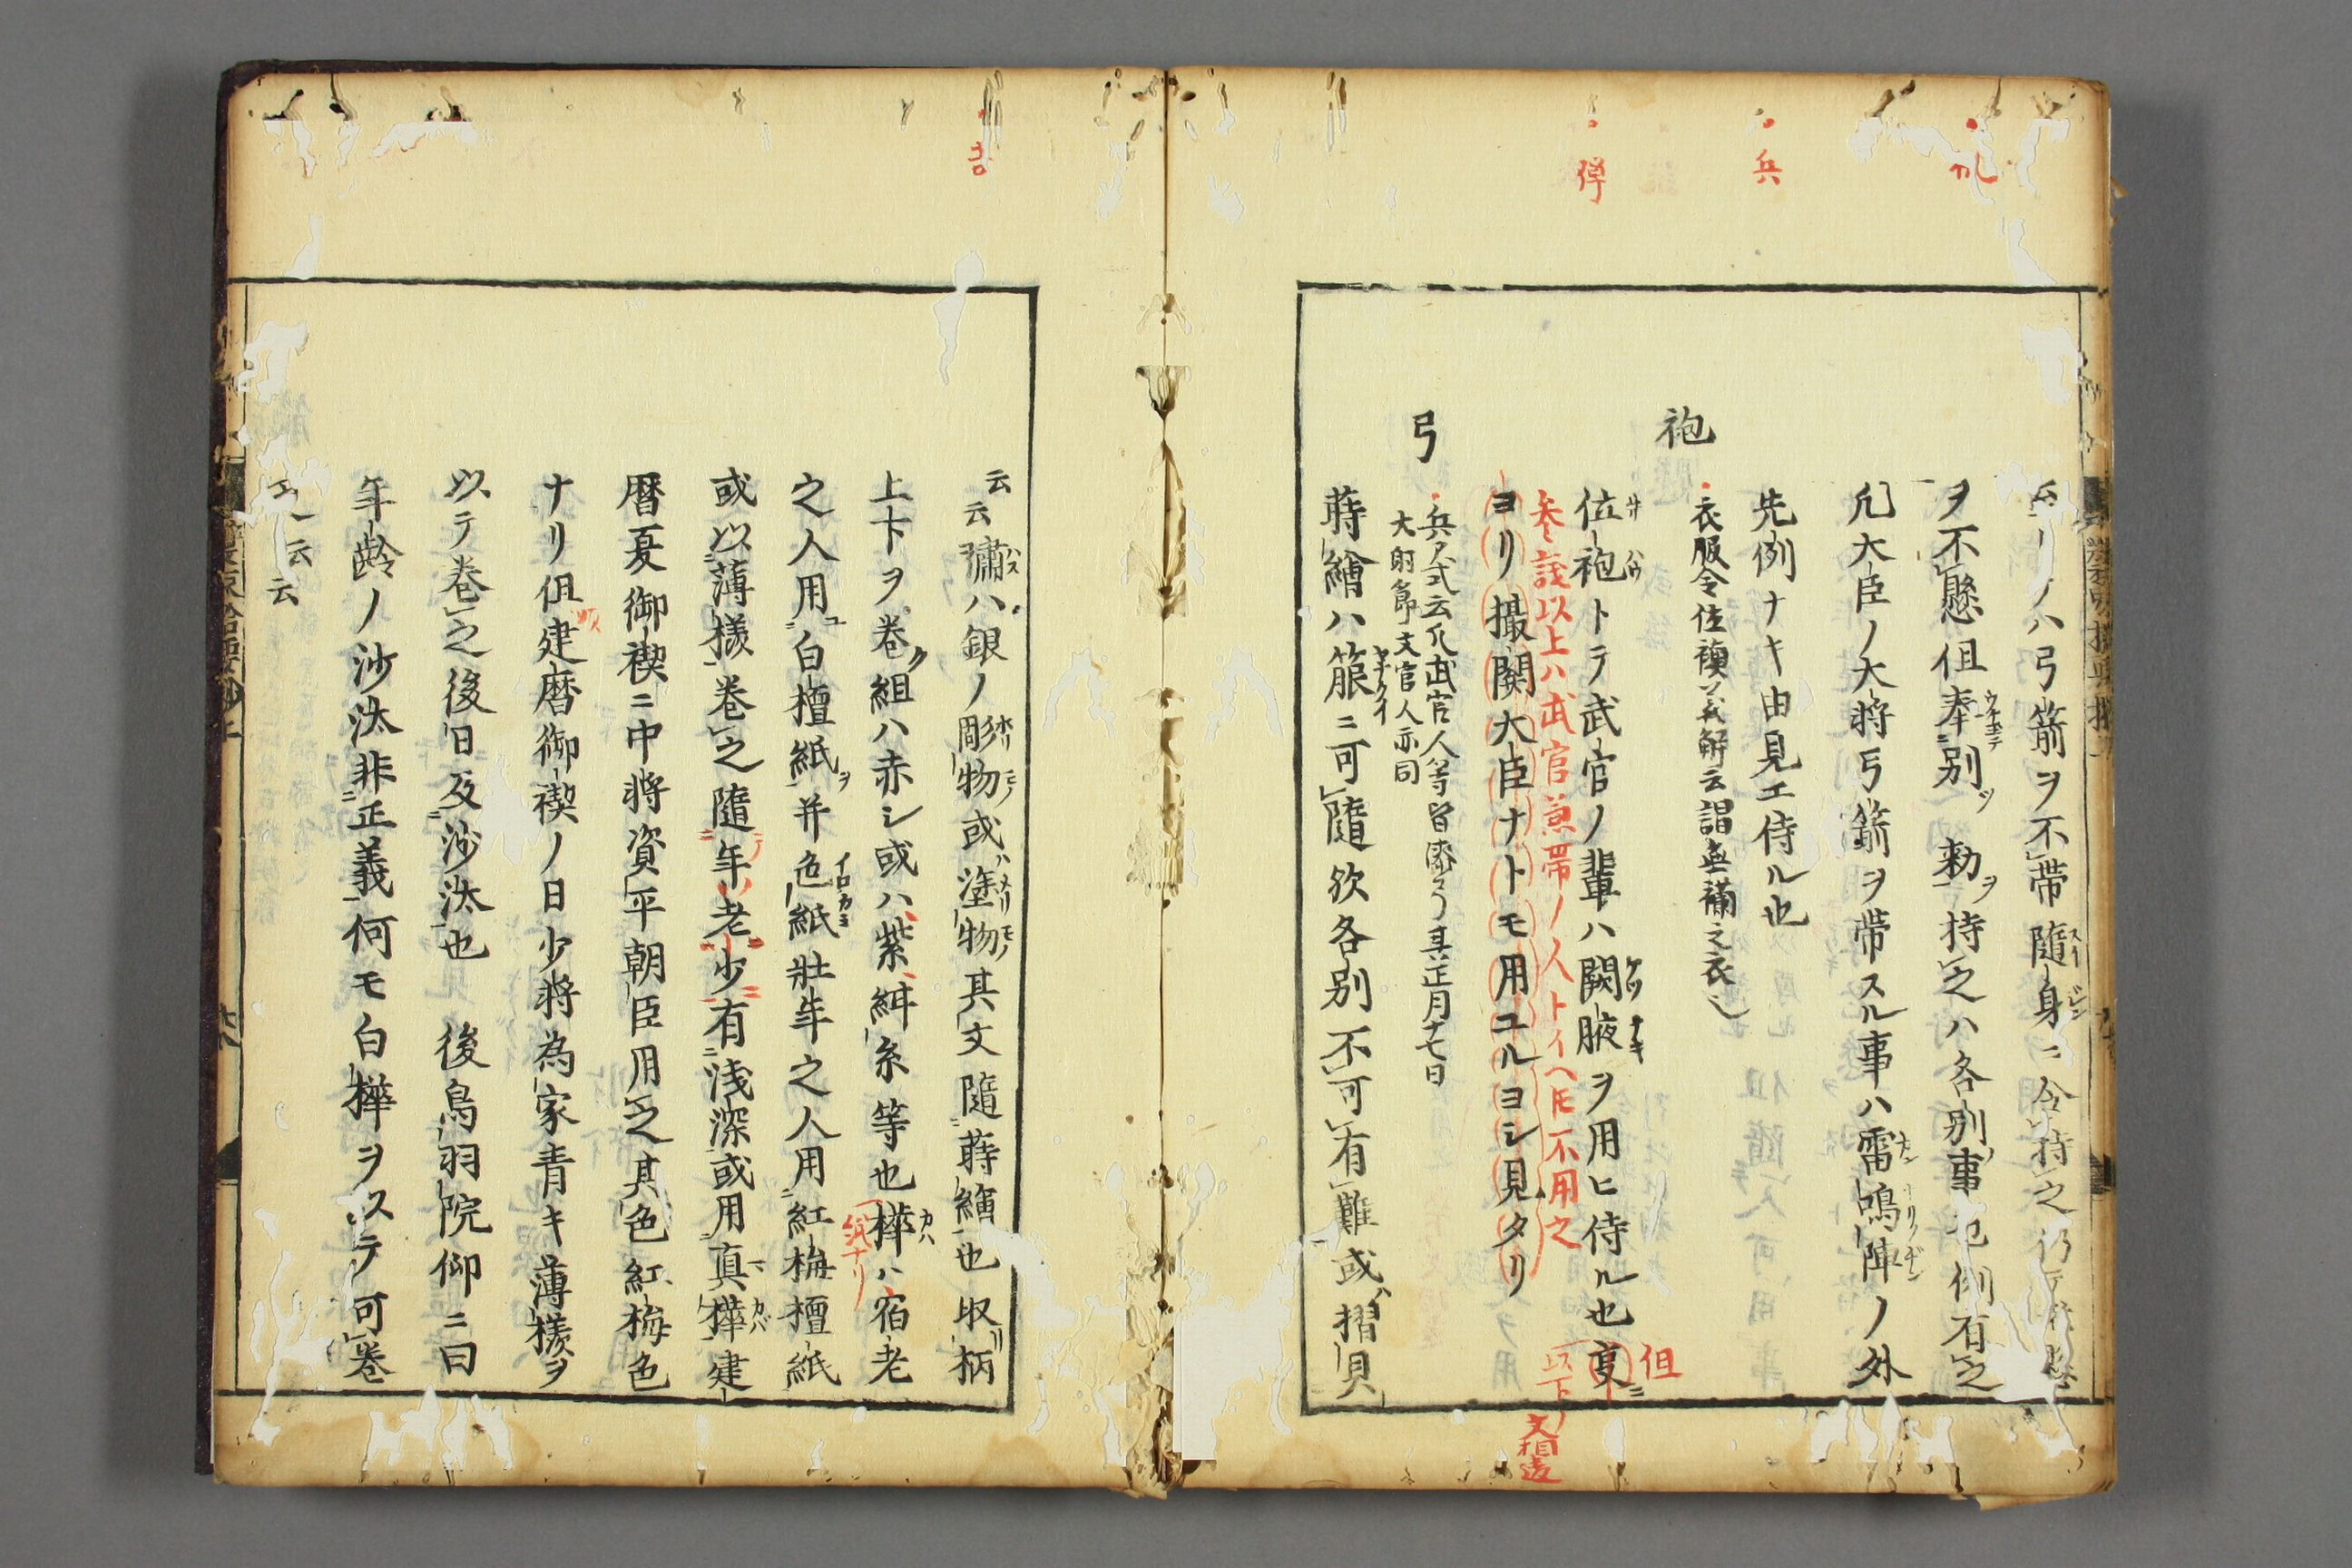 ハ弓箭ヲ不帯隨身ニ令持之
ヲ不懸但奉別勅ヲ持之ハ各別事也例有之
凡大臣ノ大将弓箭ヲ帯スル事ハ雷鳴陣ノ外
先例ナキ由見エ侍ル也
袍
衣服令位襖義解云謂無襴之衣也
位袍トテ武官ノ輩ハ闕腋ヲ用ヒ侍ル也
参議以上ハ武官兼帯ノ人トイヘ𪜈不用之
ヨリ撮関大臣ナトモ用ユルヨシ見タリ
弓
兵アヱ式云凡武官人等皆漆弓其正月十七日
大射節文官人亦同
蒔繪ハ箙ニ可隨欤各別不可有難或摺貝
云云彇ハ銀ノ彫物或塗物其文隨蒔繪也取柄
上下ヲ巻組ハ赤シ或ハ紫絳糸等也樺ハ宿老
之人用白檀紙并色紙壮年之人用紅梅檀紙
或以薄様巻之隨年老少有浅深或用真樺建
暦夏御禊ニ中将資平朝臣用之其色紅梅色
ナリ但建暦御禊ノ日少将為家青キ薄様ヲ
以テ巻之後日及沙汰也　後鳥羽院仰ニ曰
年齢ノ沙汰非正義何モ白樺ヲステ可巻
云云
兵
弾
但
以下
文相違